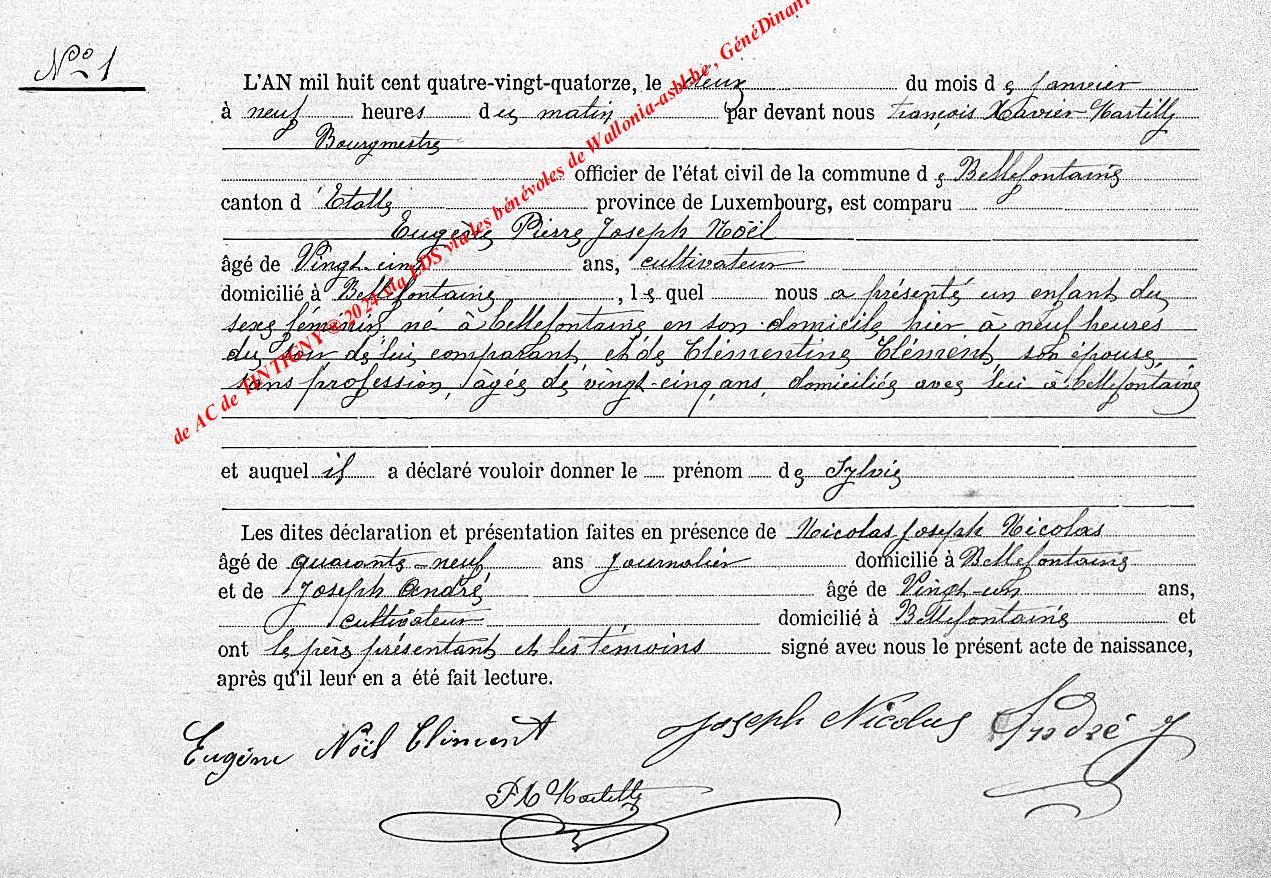 N° 1
L'AN mil huit cent quatre-vingt-quatorze, le deux du mois de Janvier
à neuf heures du matin par devant nous François Xavier Martilly
Bourgmestre
officier de l'état civil de la commune de Bellefontaine
canton d'Etalle province de Luxembourg, est comparu
Eugène Pierre Joseph Noël
âgé de Vingt-cinq ans, cultivateur
domicilié à Bellefontaine, le quel nous a présenté un enfant du
sexe féminin né à bellefontaine en son domicile hier à neuf heures
du soir de lui comparant et de Clémentine Clément, son épouse,
sans profession, âgée de vingt-cinq ans, domiciliée avec lui à bellefontaine
et auquel il a déclaré vouloir donner le prénom de Sylvie
Les dites déclaration et présentation faites en présence de Nicolas Joseph Nicolas
âgé de quarante-neuf ans Journalier domicilié à Bellefontaine
et de Joseph André âgé de Vingt-un ans,
cultivateur domicilié à Bellefontaine et
ont le père présentant et les témoins signé avec nous le présent acte de naissance,
après qu'il leur en a été fait lecture.
Eugène Noël Clément Joseph Nicolas André J
FX Martilly
de AC de TINTIGNY @ 2024 via LDS via les bénévoles de Wallonia-asbl.be, GénéDinant